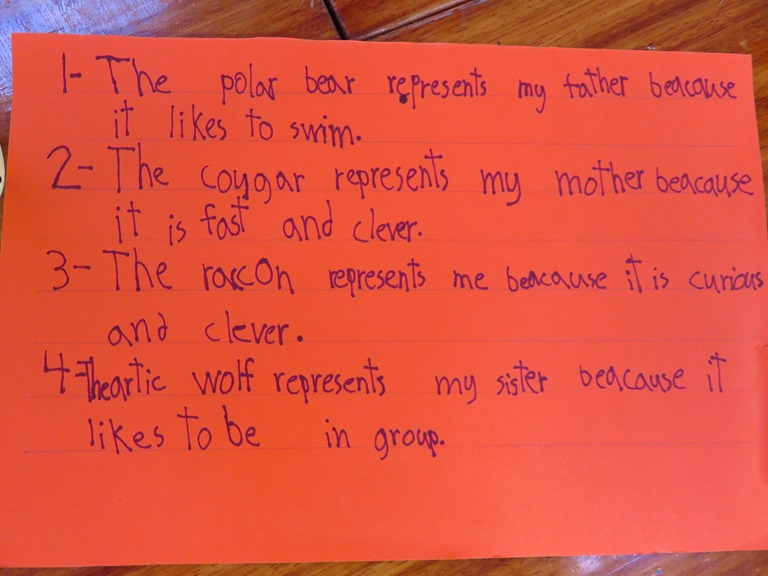 1- The polar bear represents my father beacause
it likes to swim.
2- The coygar represents my mother beacause
it is fast and clever.
3- The raccon represents me beacause it is curious
and clever.
4-The artic wolf represents my sister beacause it
likes to be in group.